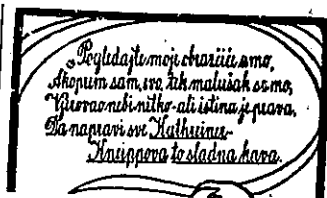 „Pogledajte moje obraščiće amo,
Ako prem sam, evo, tek mališak samo,
Vjerovao nebi nitko - ali istina je prava,
Da napravi sve Kathreiner-
Kneippova to sladna kava.